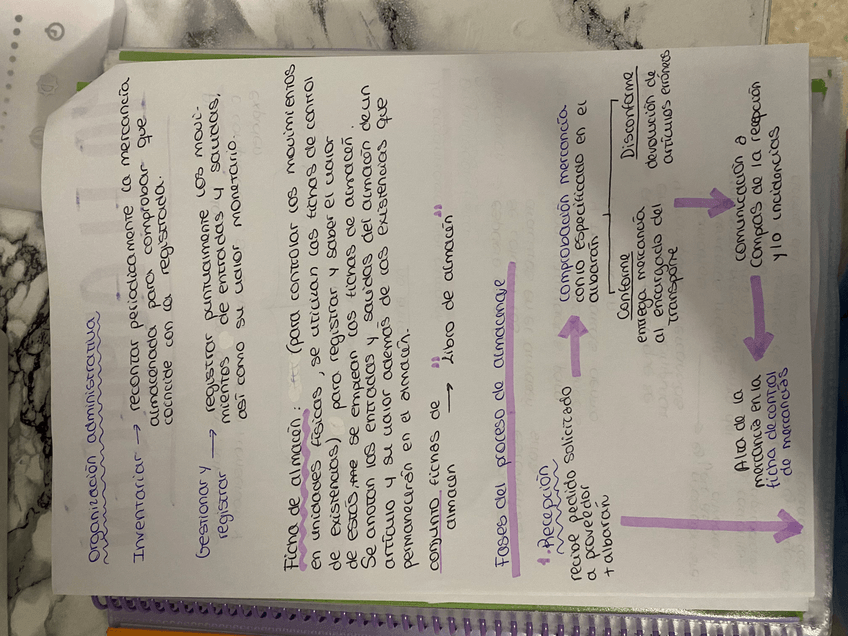 Organización administrativa
Inventariar → recontar periodicamente la mercancía
almacenada para comprobar que
coincide con la registrada.
Gestionar y → registrar puntualmente los movi-
registrar mientos de entradas y salidas,
así como su valor monetario.
Ficha de almacén: (para controlar los movimientos
en unidades físicas, se utilizan las fichas de control
de existencias) para registrar y saber el valor
de estas se emplean las fichas de almacén.
Se anotan las entradas y salidas del almacén de un
artículo y su valor además de las existencias que
permanecerán en el almacén.
conjunto fichas de
almacén → "Libro de almacén"
Fases del proceso de almacenaje
1. Recepción
recibe pedido solicitado
a proveedor
+ albarán
comprobación mercancía
con lo especificado en el
albarán
Conforme
entrega mercancía
al encargado del
transporte
Disconforme
devolución de
artículos erróneos
comunicación a
compras de la recepción
y/o incidencias
Alta de la
mercancía en la
ficha de control
de mercancías